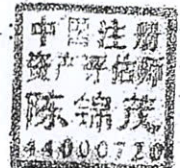 中国注册
资产评估师
陈锦茂
44000720